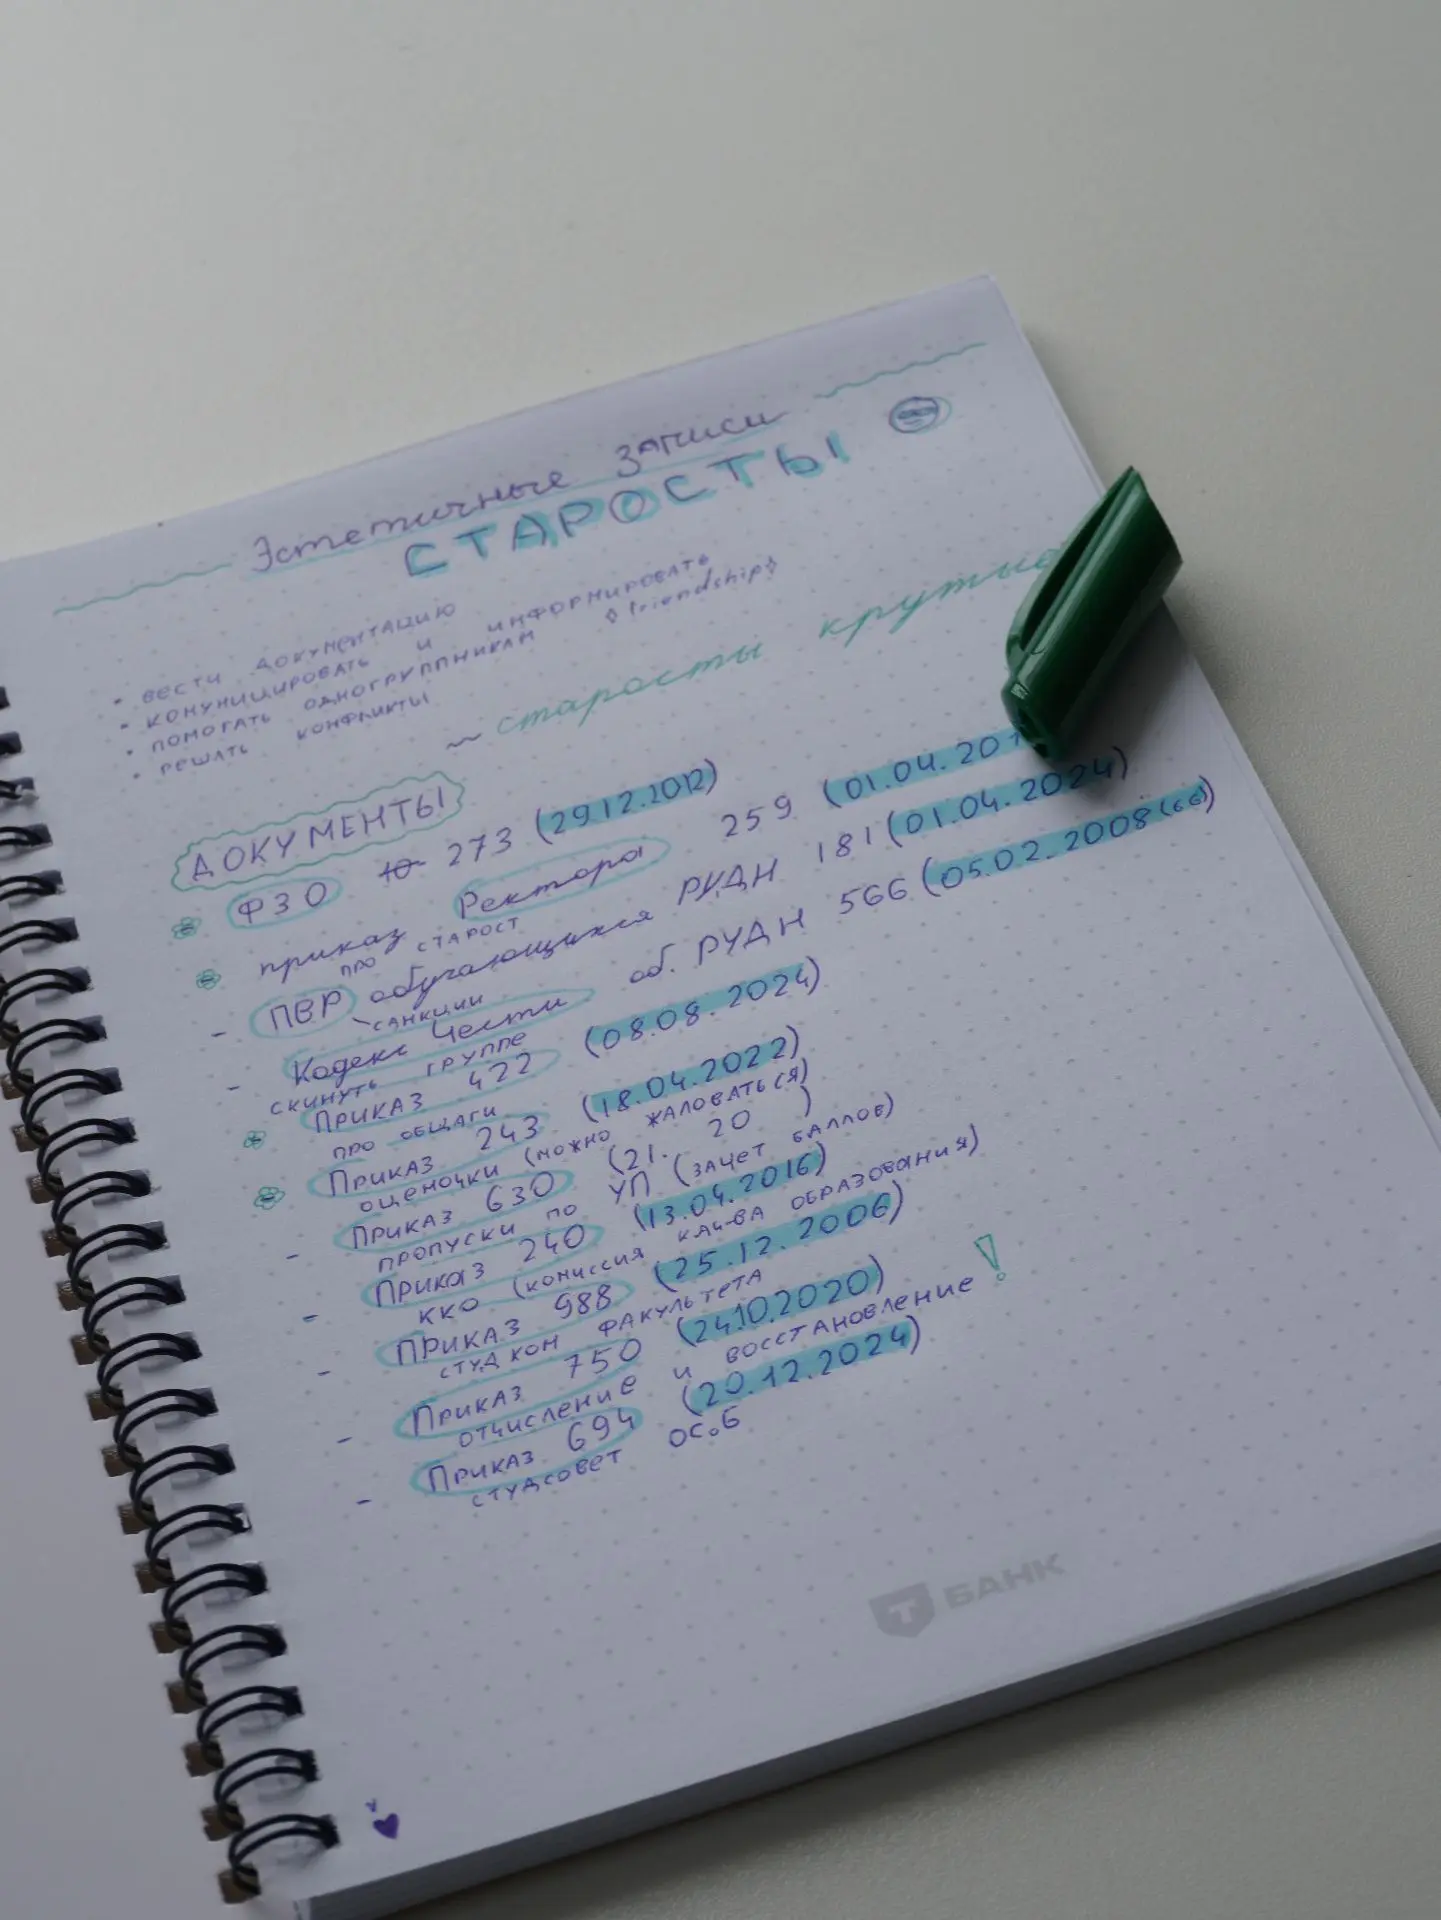 Эстетичные записи
СТАРОСТЫ
• ВЕСТИ ДОКУМЕНТАЦИЮ
• КОМУНИЦИРОВАТЬ И ИНФОРМИРОВАТЬ
• ПОМОГАТЬ ОДНОГРУППНИКАМ ◊ friendship ◊
• РЕШАТЬ КОНФЛИКТЫ
~ старосты крутые
ДОКУМЕНТЫ
ФЗО 273 (29.12.2012)
приказ Ректора 259 (01.04.201
ПРО СТАРОСТ
- ПВР обучающихся РУДН 181 (01.04.2024)
САНКЦИИ
- Кодекс Чести об. РУДН 566 (05.02.2008 (66)
СКИНУТЬ ГРУППЕ
ПРИКАЗ 422 (08.08.2024)
ПРО ОБЩАГИ
ПРИКАЗ 243 (18.04.2022)
ОЦЕНОЧКИ (МОЖНО ЖАЛОВАТЬСЯ)
- ПРИКАЗ 630 (21. 20 )
ПРОПУСКИ ПО УП (ЗАЧЕТ БАЛЛОВ)
- ПРИКАЗ 240 (13.04.2016)
ККО (КОМИССИЯ КАЧ-ВА ОБРАЗОВАНИЯ)
- ПРИКАЗ 988 (25.12.2006)
СТУДКОМ ФАКУЛЬТЕТА
- ПРИКАЗ 750 (24.10.2020)
ОТЧИСЛЕНИЕ И ВОССТАНОВЛЕНИЕ !
- ПРИКАЗ 694 (20.12.2024)
СТУДСОВЕТ ОС.Б
Т БАНК